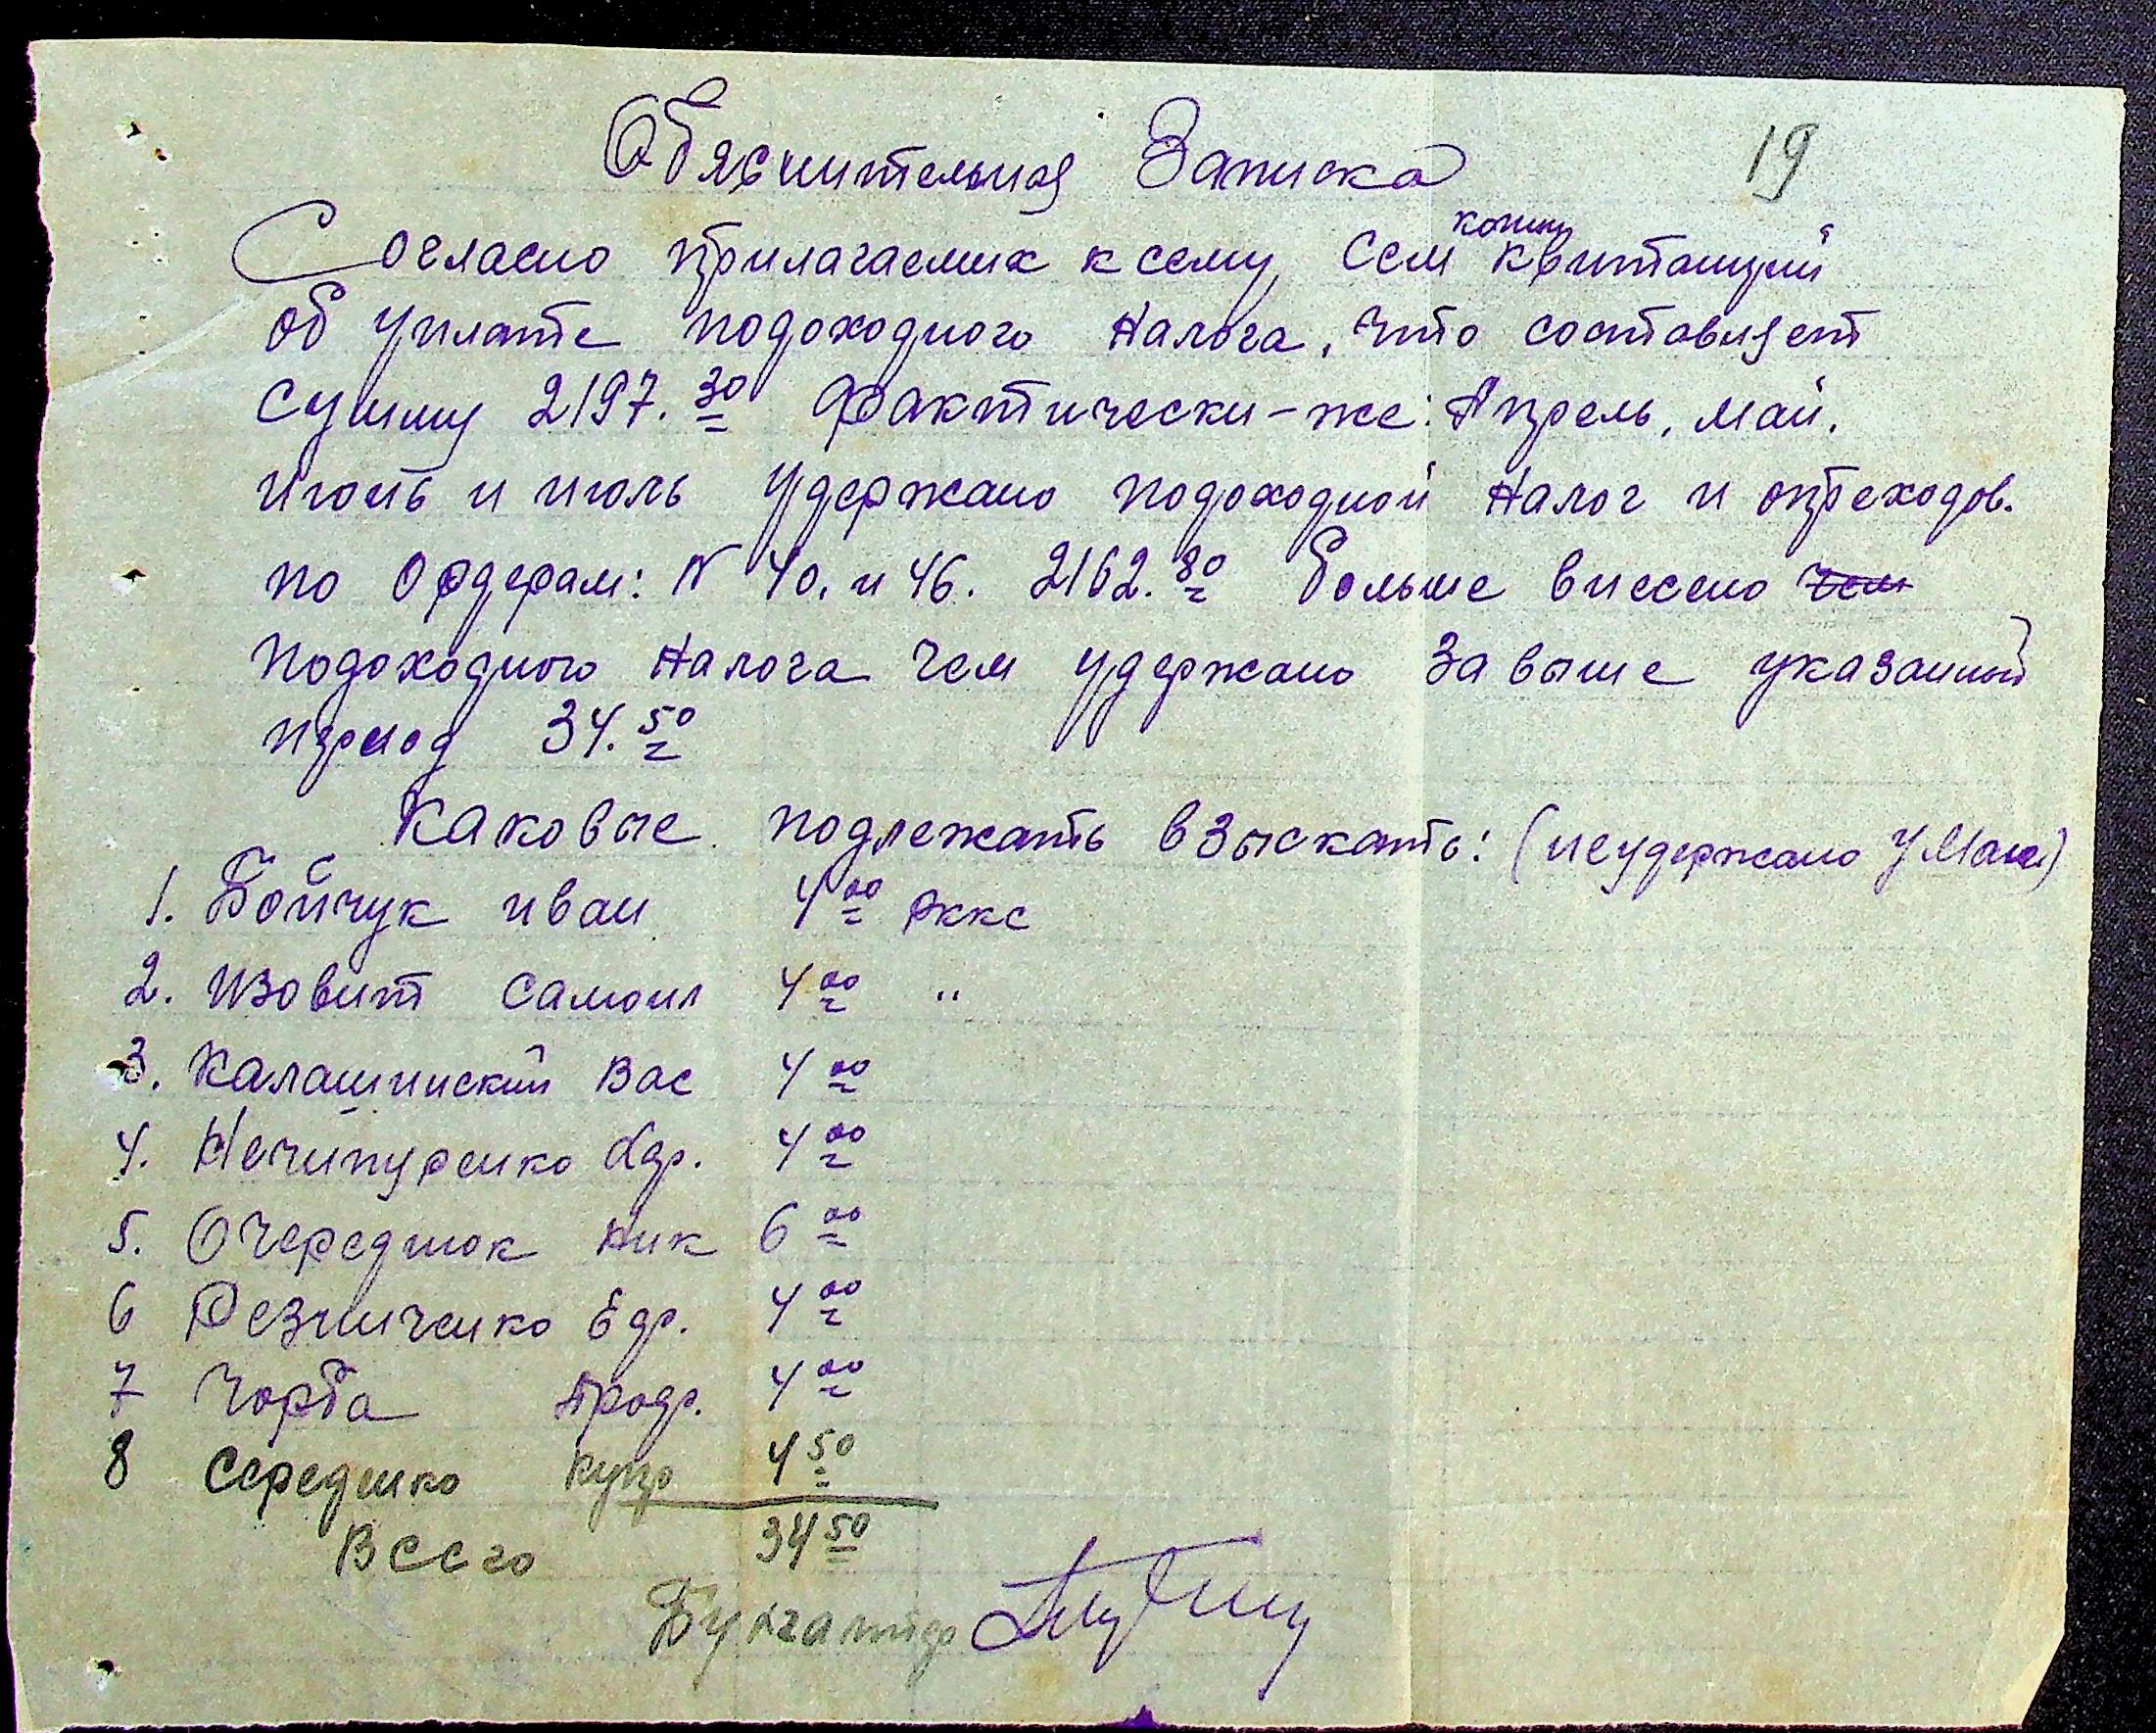 Обяснительная Записка
19
копии
Согласно прилагаемых к сему сем квитанций
об уплате подоходного налога, что составляет
сумму 2197.30 фактически-же: Апрель, май,
июнь и июль удержано подоходной налог и
по ордерам: N 40. и 46. 2162.80 больше внесено чем
подоходного налога чем удержано за выше указанной
период 34.50
каковые подлежать взыскать: (неудержано у мая)
1. Бойчук иван 4 00 РККС
2. Изовит Самоил 4 00 "
3. Калашинский Вас 4 00
4. Нечипуренко Адр. 4 00
5. Очереднюк ник 6 00
6 Резниченко Ефр. 4 00
7 Чорба Трофр. 4 00
8 Середенко Купр 4 50
Всего 34 50
Бухгалтер